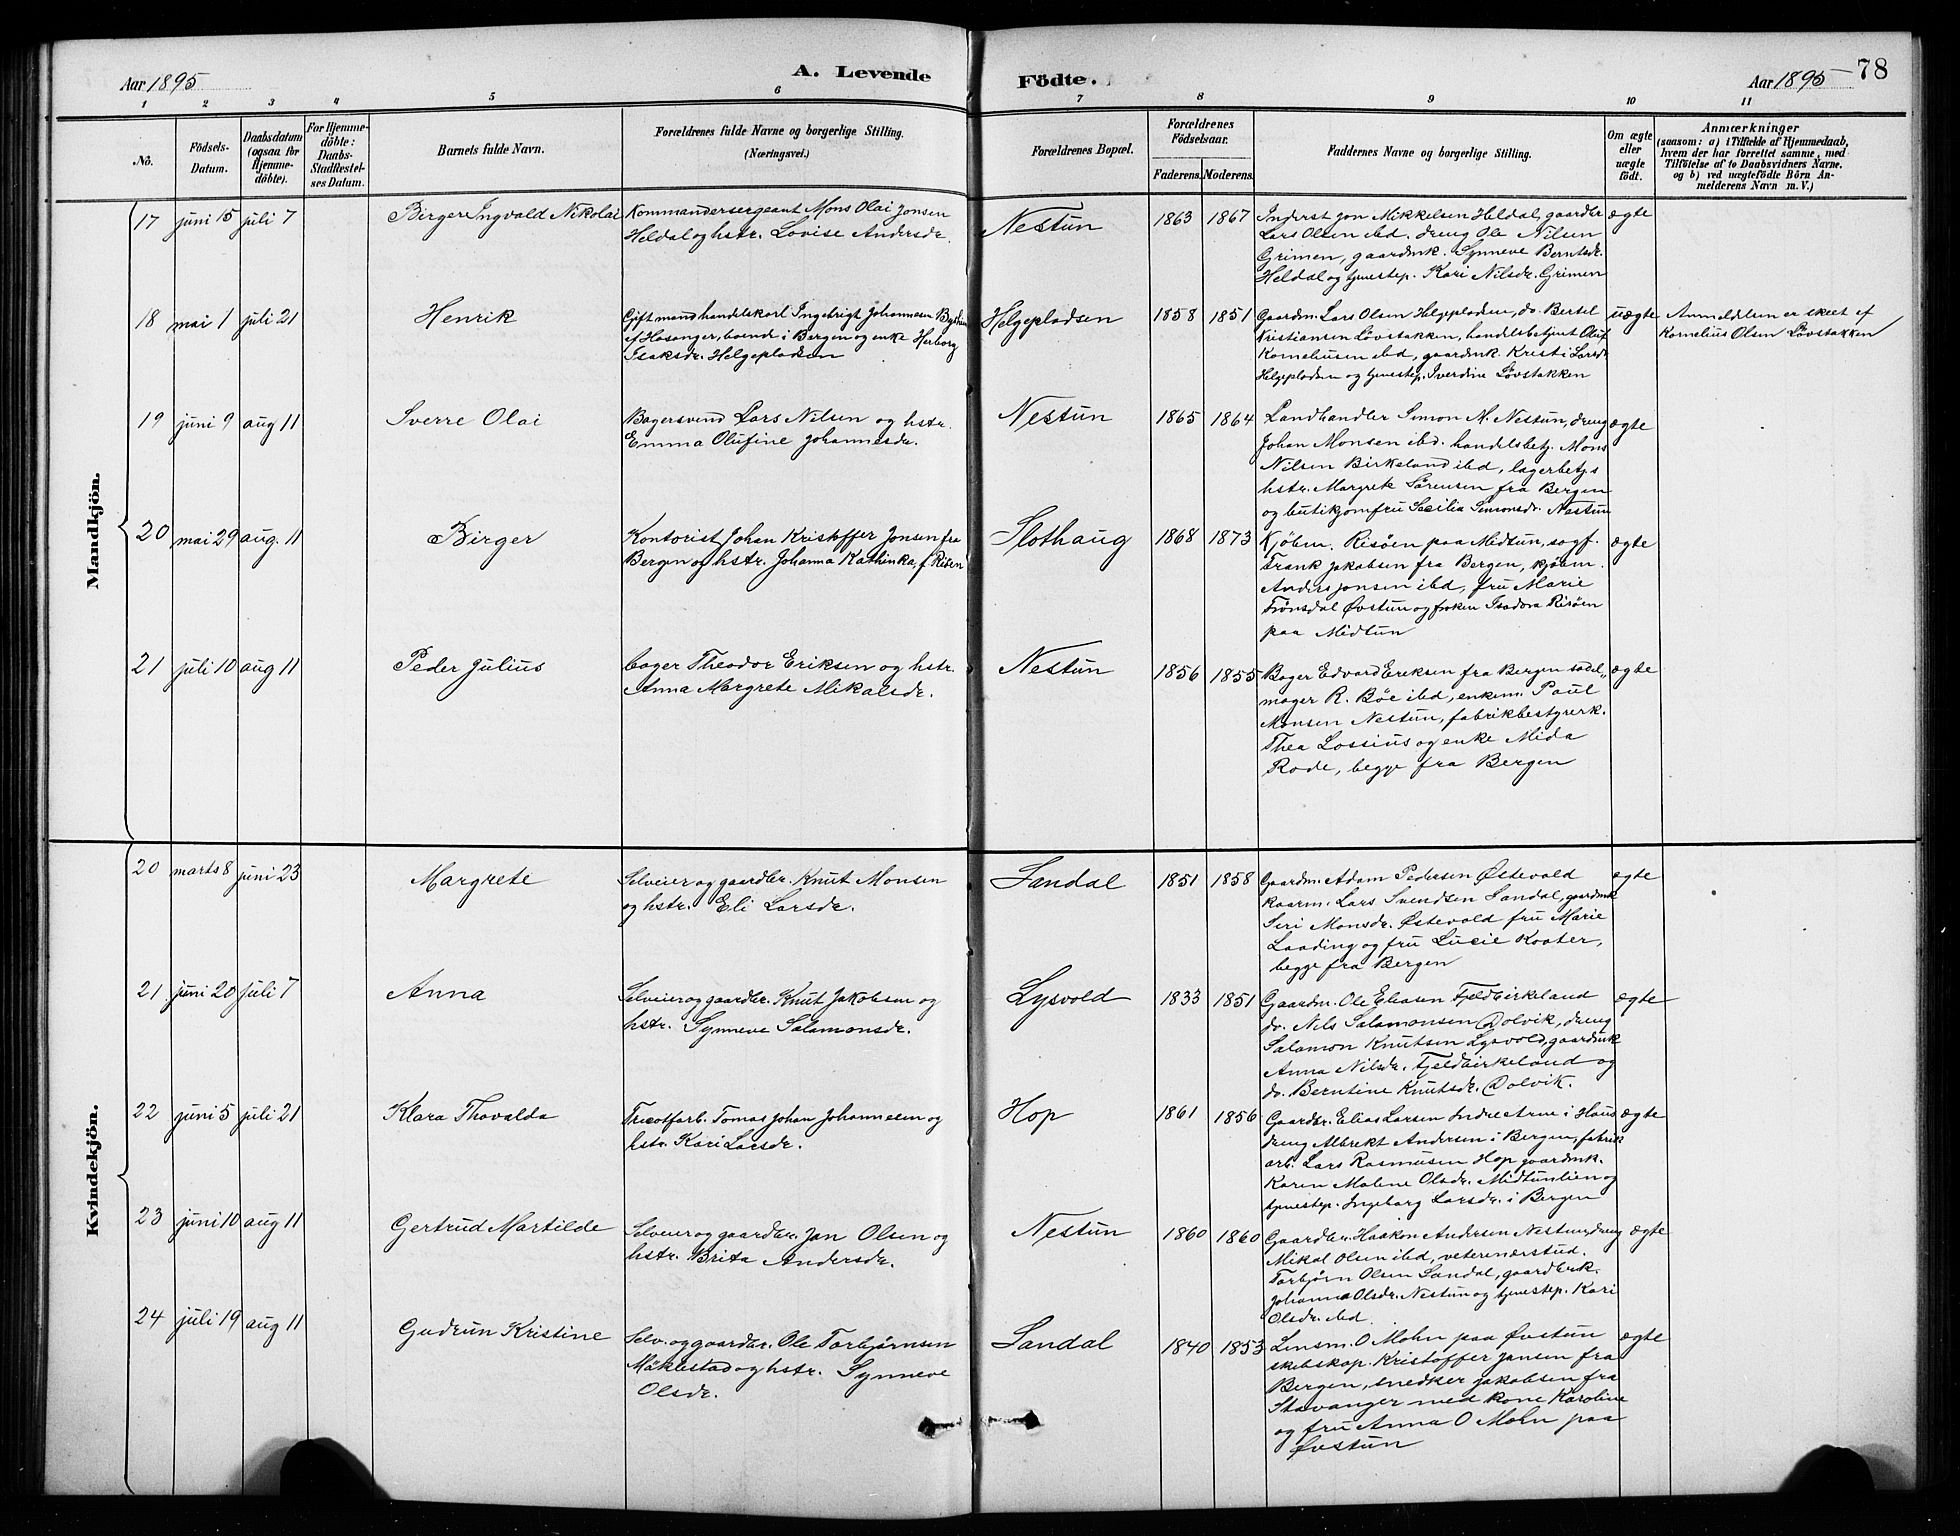 Aar 1895
A. Levende
Födte.
Aar 1895
78
1 2 3 4 5 6 7 8 9 10 11
No.
Födsels-
Datum.
Daabsdatum
(ogsaa for
Hjemme-
döbte).
For Hjemme-
döbte:
Daabs-
Stadfæstel-
ses Datum.
Barnets fulde Navn.
Forældrenes fulde Navne og borgerlige Stilling.
(Næringsvei.)
Forældrenes Bopæl.
Forældrenes
Födselsaar.
Faderens. Moderens.
Faddernes Navne og borgerlige Stilling.
Om ægte
eller
uægte
födt.
Anmærkninger
(saasom: a) i Tilfælde af Hjemmedaab,
hvem der har forrettet samme, med
Tilföielse af to Daabsvidners Navne.
og b) ved uægtefödte Börn An-
melderens Navn m. V.)
Mandkjön.
17 juni 15 juli 7 Birger Ingvald Nikolai
Kommandersergeant Mons Olai Jonsen
Heldal og hstr. Lovise Andersdr.
Nestun 1863 1867
Inderst Jon Mikkelsen Heldal, gaardbr.
Lars Olsen ibd. dreng Ole Nilsen
Grimen, gaardmk. Synneve Berntsdr.
Heldal og tjenestep. Kari Nilsdr. Grimen
ægte
18 mai 1 juli 21 Henrik
Gift mand handelskarl Ingebrigt Johannesen
af Hosanger, boende i Bergen og enke Herborg
Isaksdr. Helgepladsen
Helgepladsen 1858 1851
Gaardm. Lars Olsen Helgepladsen, do. Bertel
Kristiansen Løvstakken, handelsbetjent Oluf
Korneliusen ibd, gaardmk. Kristi Larsdr.
Helgepladsen og tjenestep. Iverdine Løvstakken
uægte
Anmeldelsen er skeet af
Kornelius Olsen Løvstakken
19 juni 9 aug 11 Sverre Olai
Bagersvend Lars Nilsen og hstr.
Emma Olufine Johannesdr.
Nestun 1865 1864
Landhandler Simon M. Nestun, dreng
Johan Monsen ibd. handelsbetj. Mons
Nilsen Birkeland ibd, lagerbetj.s
hstr. Margrete Sørensen fra Bergen
og butikjomfru Secilia Simonsdr. Nestun
ægte
20 mai 29 aug. 11 Birger
Kontorist Johan Kristoffer Jonsen fra
Bergen og hstr. Johanna Kathinka, f. Risøen
Slothaug 1868 1873
Kjøbm. Risøen paa Midtun, sagf.
Frank Jakobsen fra Bergen, kjøbm.
Anders Jonsen ibd, fru Marie
Frønsdal Øvstun og frøken Isadora Risøen
paa Midtun
ægte
21 juli 10 aug 11 Peder Julius
bager Theodor Eriksen og hstr.
Anna Margrete Mikalsdr.
Nestun 1856 1855
Bager Edvard Eriksen fra Bergen sadel-
mager R. Bøe ibd, enkem. Paul
Monsen Nestun, fabrikbestyrerk.
Thea Lossius og enke Mida
Rode, begge fra Bergen
ægte
Kvindekjön.
20 marts 8 juni 23 Margrete
Selveier og gaardbr. Knut Monsen
og hstr. Eli Larsdr.
Sandal 1851 1858
Gaardm. Adam Pedersen Østevold
kaarm. Lars Svendsen Sandal, gaardmk
Siri Monsdr. Østevold fru Marie
Laading og fru Lucie Koater,
begge fra Bergen
ægte
21 juni 20 juli 7 Anna
Selveier og gaardbr. Knut Jakobsen og
hstr. Synneve Salamonsdr.
Lysvold 1833 1851
Gaardm. Ole Eliasen Fjeldbirkeland
do. Nils Salamonsen Dolvik, dreng
Salamon Knutsen Lysvold, gaardmk
Anna Nilsdr. Fjeldbirkeland og
do. Berntine Knutsdr. Dolvik.
ægte
22 juni 5 juli 21 Klara Thovalda
Tricotfarb. Tomas Johan Johannesen og
hstr. Kari Larsdr.
Hop 1861 1856
Gaardbr. Elias Larsen Indre Arne i Haus
dreng Albrekt Andersen i Bergen, fabrik
arb. Lars Rasmusen Hop gaardmk.
Karen Malene Olsdr. Midtunlien og
tjenestep. Ingeborg Larsdr. i Bergen
ægte
23 juni 10 aug 11 Gertrud Martilde
Selveier og gaardbr. Jan Olsen og
hstr. Brita Andersdr.
Nestun 1860 1860
Gaardbr. Haakon Andersen Nestun, dreng
Mikal Olsen ibd, veterinærstud.
Torbjørn Olsen Sandal, gaardbrk.
Johanna Olsdr. Nestun og tjenestep. Kari
Olsdr. ibd.
ægte
24 juli 19 aug 11 Gudrun Kristine
Selv. og gaardbr. Ole Torbjørnsen
Møklestad og hstr. Synneve
Olsdr.
Sandal 1840 1853
Lensm. O Mohn paa Øvstun
skibskap. Kristoffer Jansen fra
Bergen, snedker Jakobsen fra
Stavanger med kone Karoline
og fru Anna O Mohn paa
Øvstun
ægte